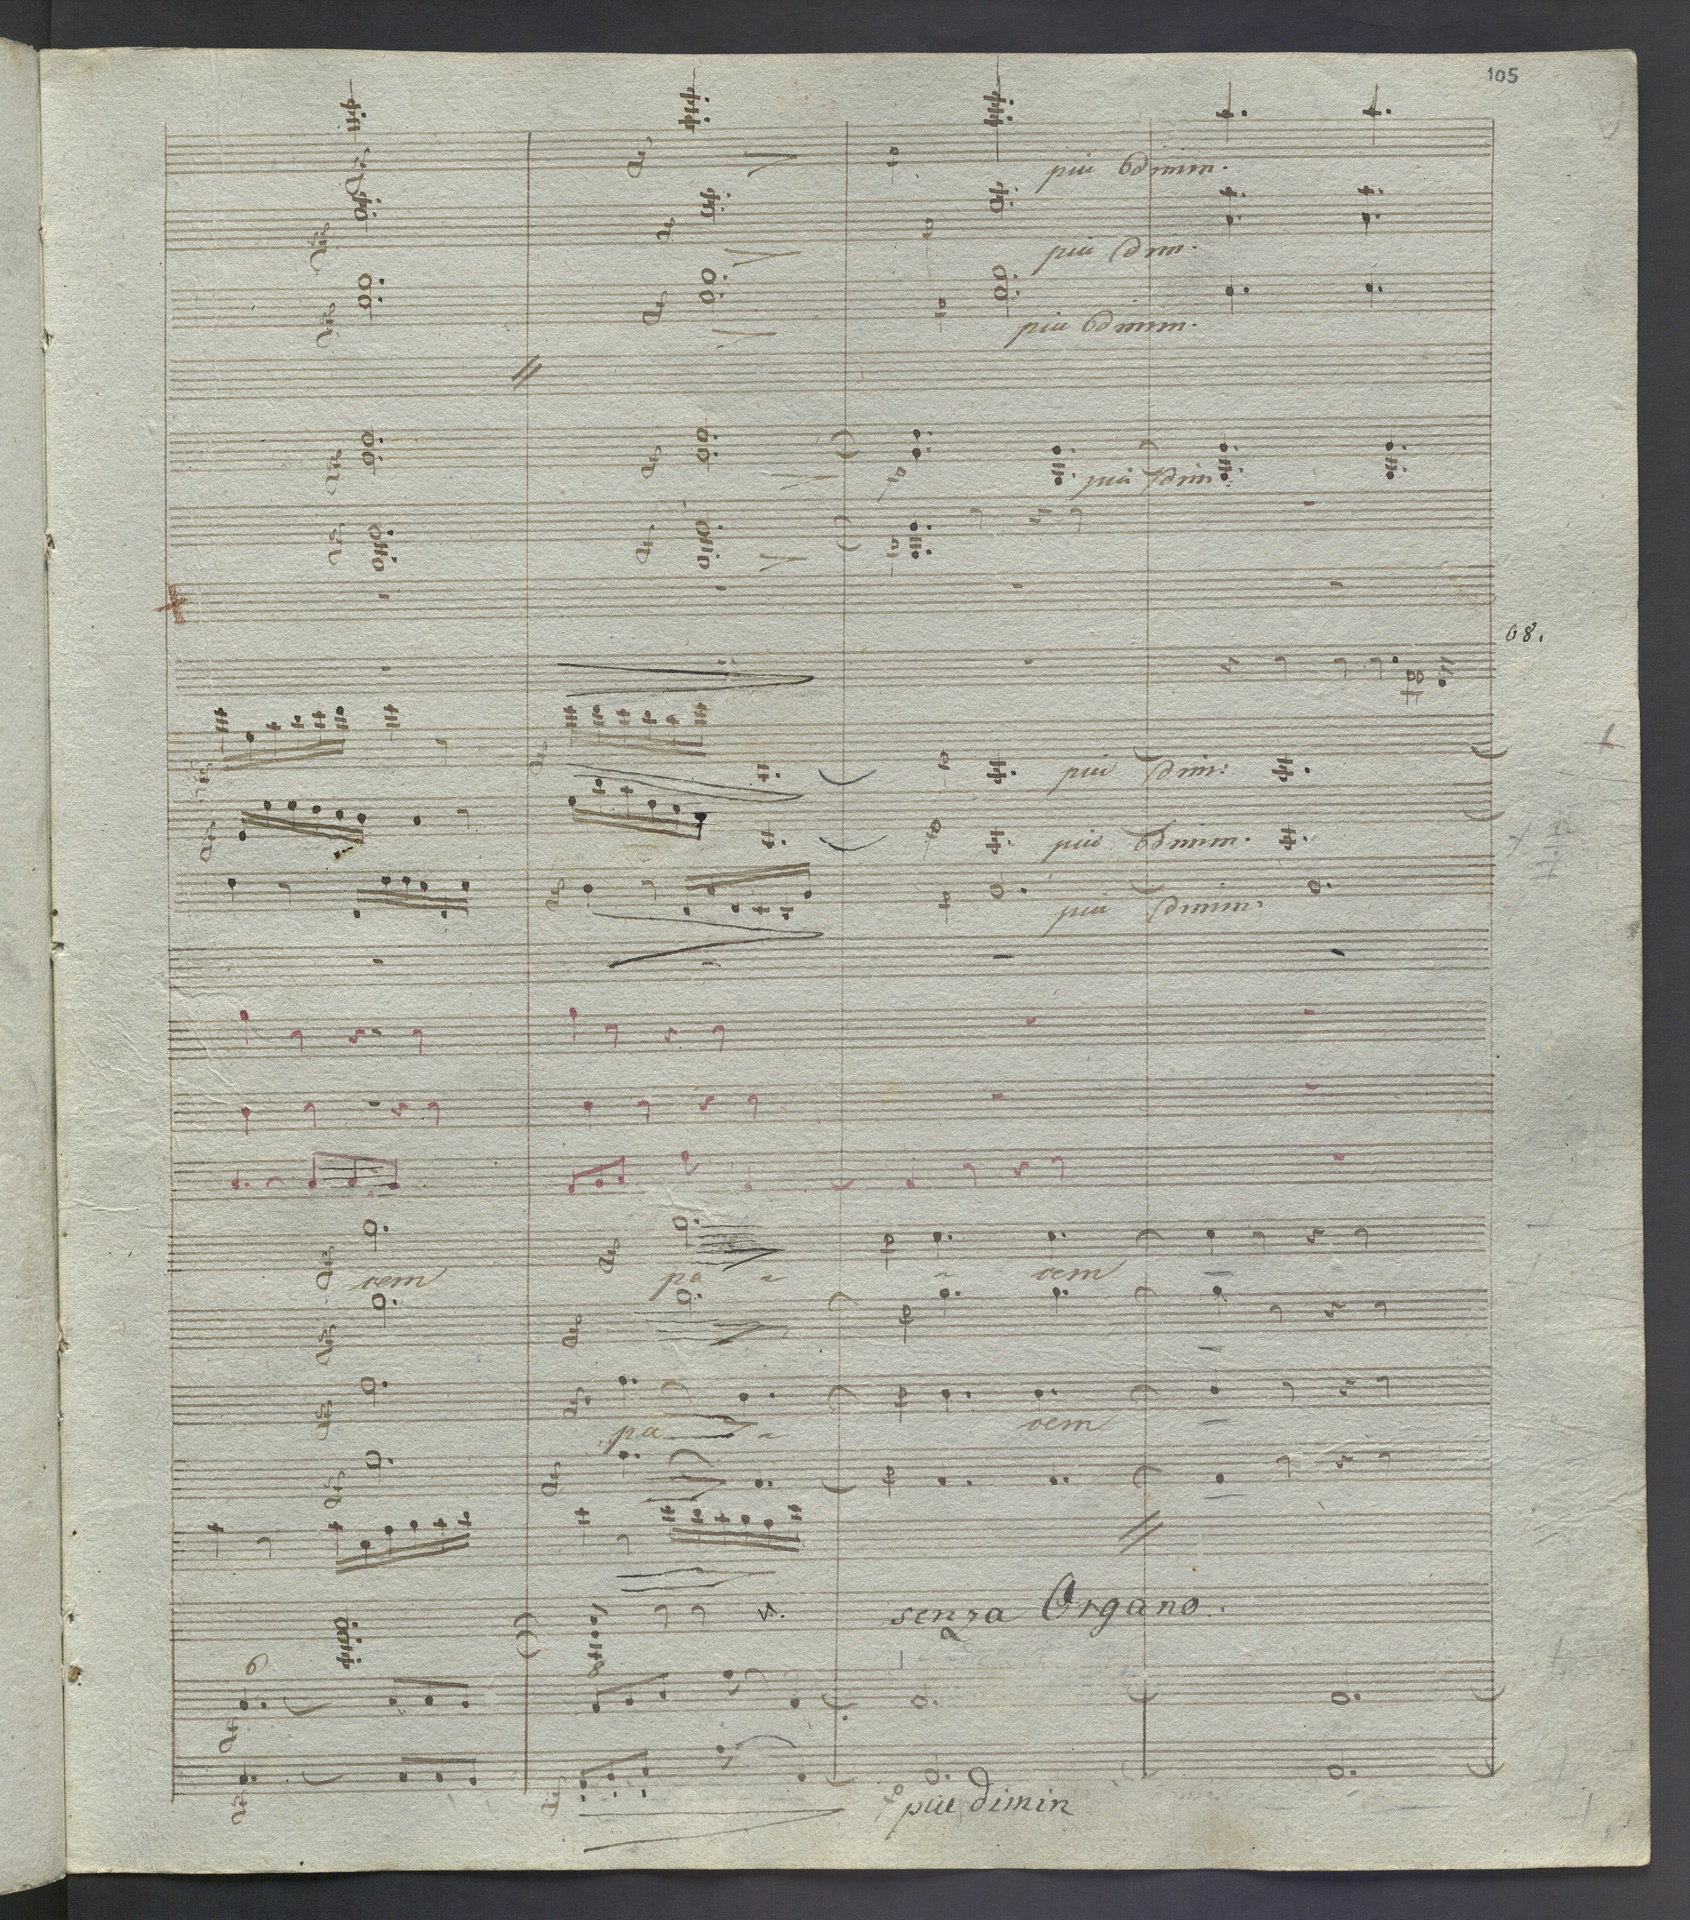 105
più dimin.
più dim.
più dimin.
più dim.
68.
più dim:
più dimin.
più dimin:
cem pa - - cem -
pa - cem
senza Organo.
6
p più dimin